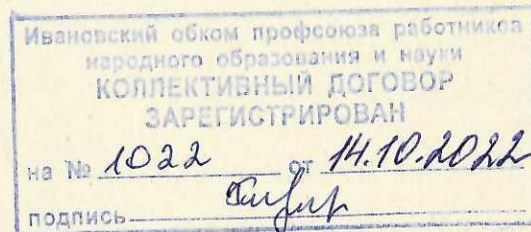 Ивановский обком профсоюза работников
народного образования и науки
КОЛЛЕКТИВНЫЙ ДОГОВОР
ЗАРЕГИСТРИРОВАН
на № 1022 от 14.10.2022
подпись